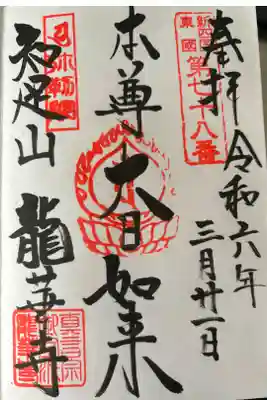 奉拝
令和六年
三月廿一日
新四国
東國
第七十八番
本尊大日如来
知足山
龍華寺
真言宗